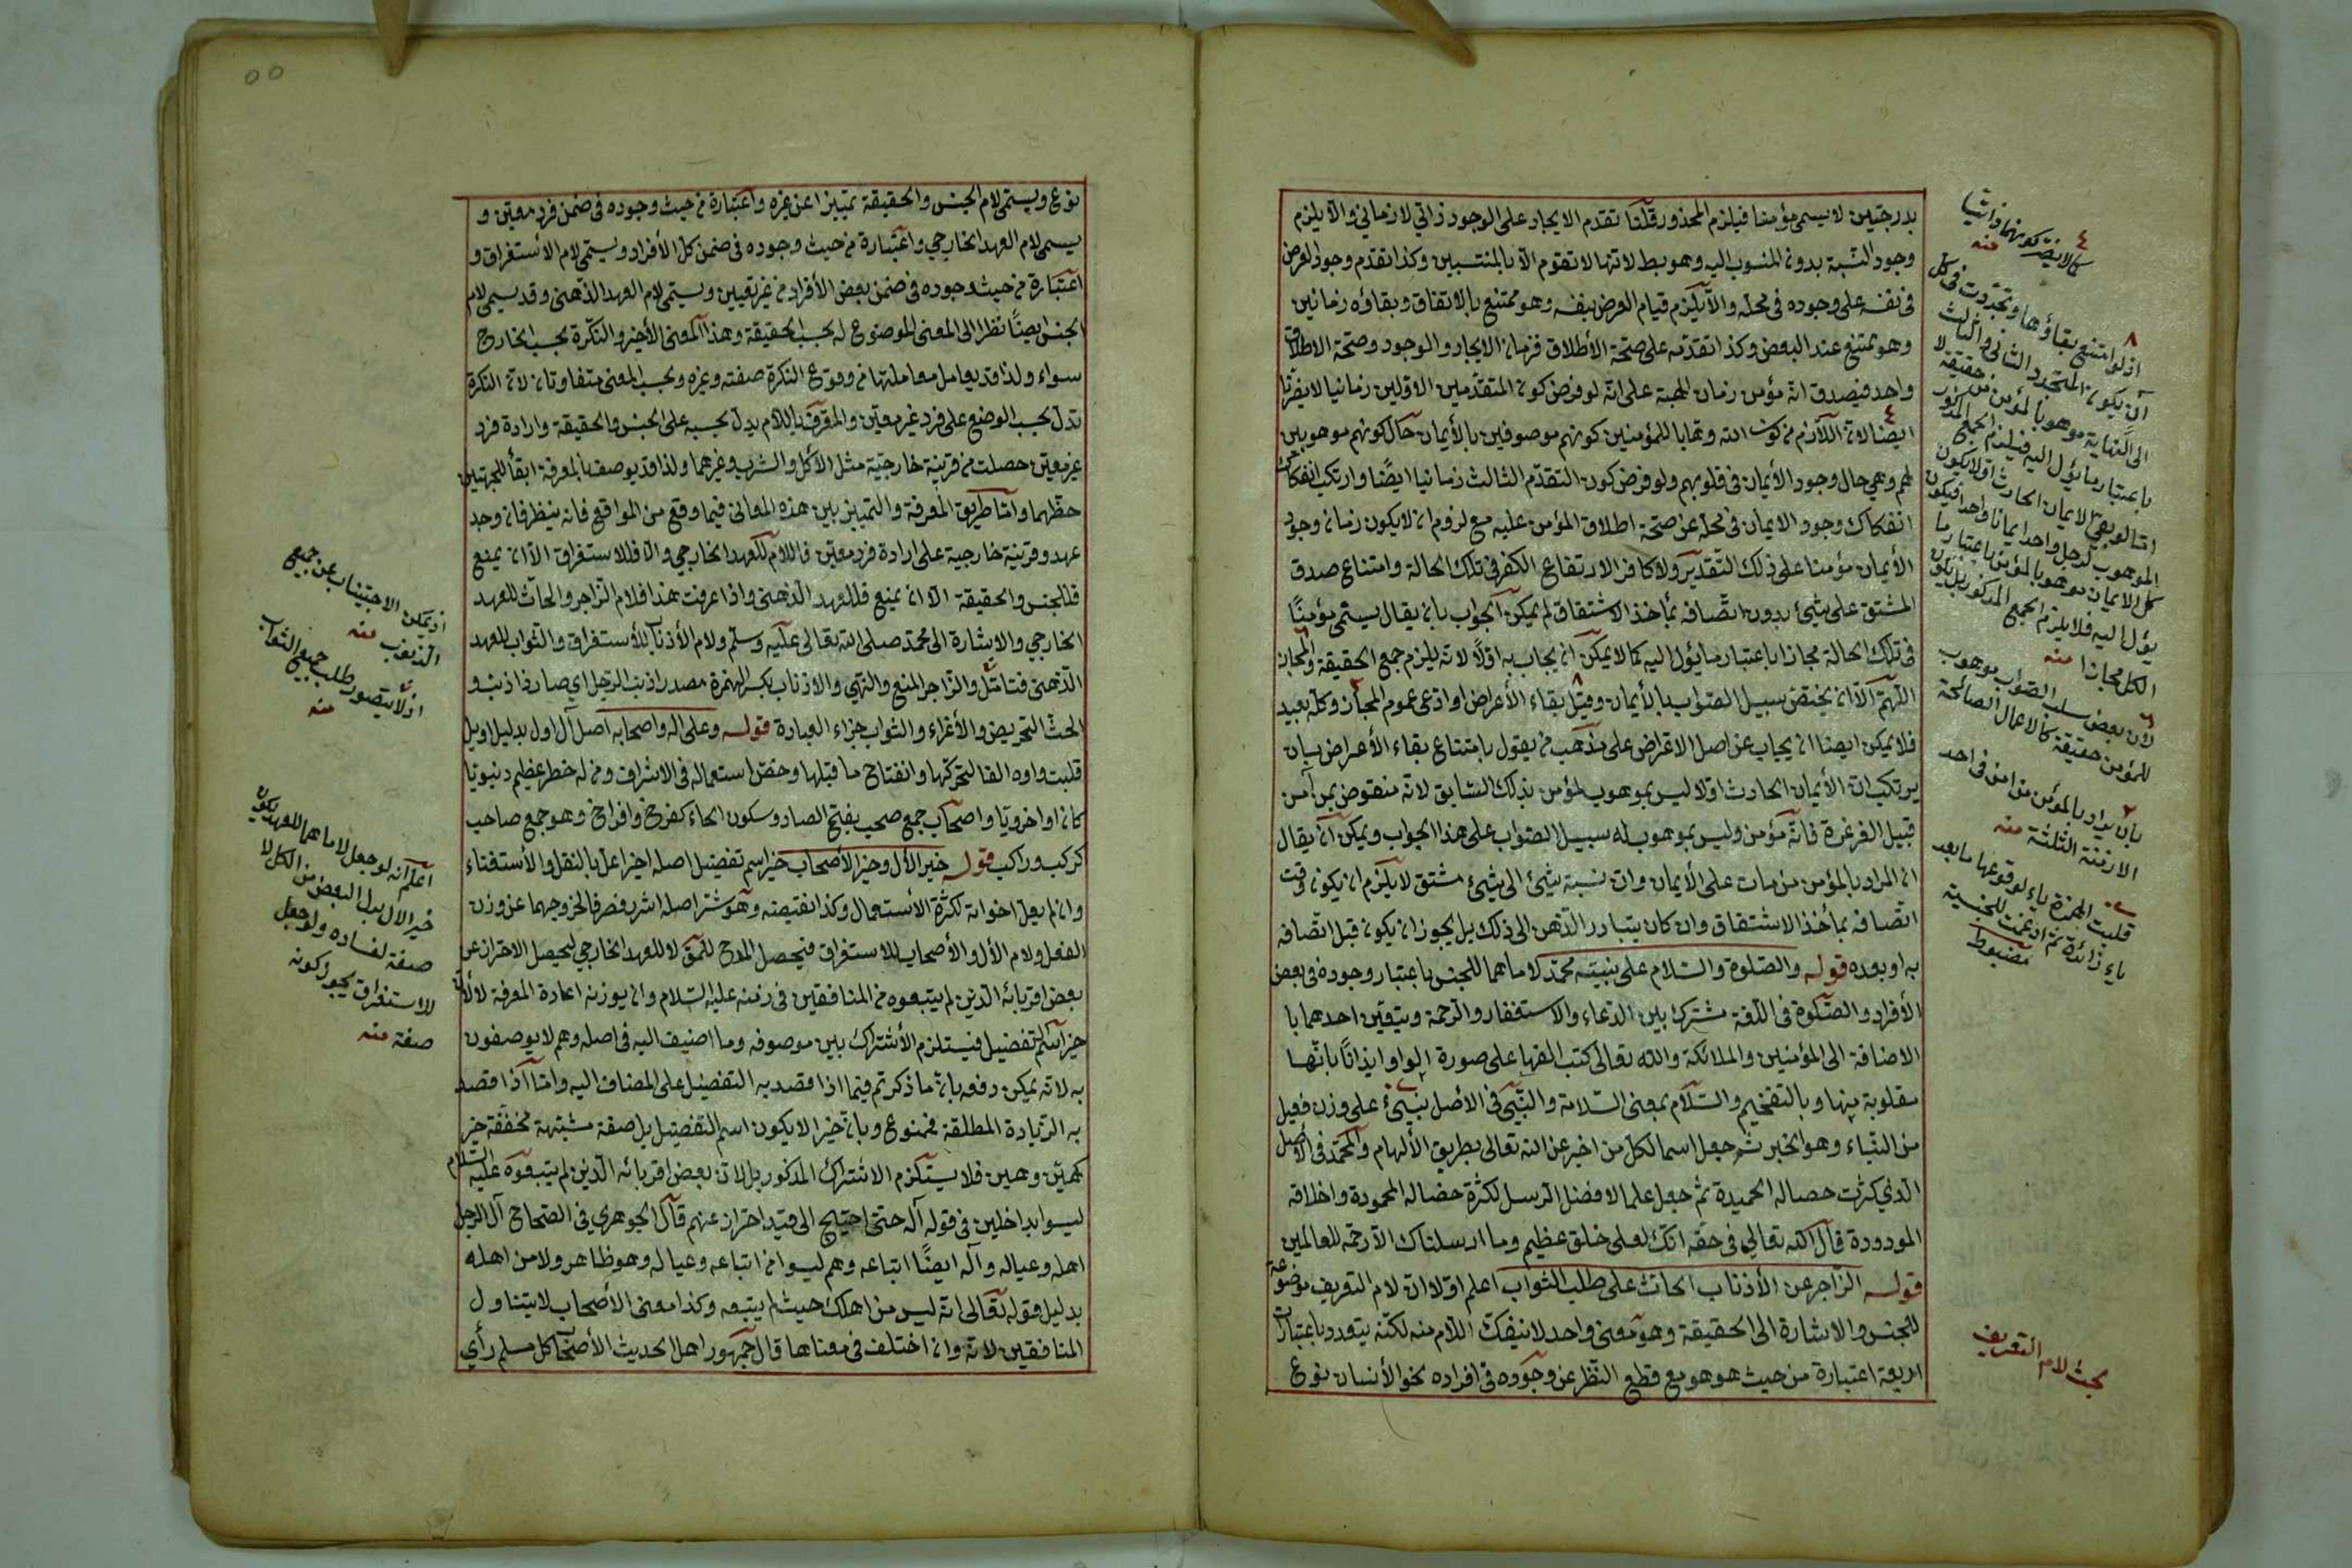 بدرجتين لا يسمى مؤمنا فيلزم المحذور قلنا تقدم الايجاد على الوجود ذاتي لا زماني والا يلزم
وجود النسبة بدون المنسوب اليه وهو بط لانها لا تقوم الا بالمنتسبين وكذا تقدم وجود العرض
فى نفسه على وجوده فى محله والا يلزم قيام العرض بنفسه وهو ممتنع بالاتفاق وبقاؤه زمانين
وهو ممتنع عند البعض وكذا تقدمه على صحة الأطلاق فزمان الايجاد والوجود وصحة الاطلاق
واحد فيصدق انه مؤمن زمان الهبة على انه لو فرض كون المتقدمين الاولين زمانيا لا يضرنا
ايضا لان اللازم من كون الله وهابا للمؤمنين كونهم موصوفين بالأيمان حال كونهم موهوبين
لهم وهي حال وجود الأيمان فى قلوبهم ولو فرض كون التقدم الثالث زمانيا ايضًا وارتكب انفكاك
انفكاك وجود الايمان فى محله عن صحة اطلاق المؤمن عليه مع لزوم ان لا يكون زمان وجود
الأيمان مؤمنا على ذلك التقدير ولا كافرا لارتفاع الكفر فى تلك الحالة وامتناع صدق
المشتق على شئ بدون اتصافه بمأخذ الاشتقاق لم يمكن الجواب بان يقال يسمى مؤمنًا
فى تلك الحالة مجازا باعتبار ما يؤل اليه كما لا يمكن ان يجاب به اولا لانه يلزم جمع الحقيقة والمجاز
اللهم الا ان يختص سبيل الصواب بالأيمان وقيل بقاء الأعراض او ادعى عموم المجاز وكله بعيد
فلا يمكن ايضا ان يجاب عن اصل الاعتراض على مذهب من يقول بامتناع بقاء الأعراض بان
يرتكب ان الأيمان الحادث اولا ليس بموهوب لمؤمن بذلك السابق لانه منقوض بمن آمن
قبيل الغرغرة فانه مؤمن وليس بموهوب له سبيل الصواب على هذا الجواب ويمكن ان يقال
ان المراد بالمؤمن من مات على الأيمان وان نسبة شئ الى شئ مشتق لا يلزم ان يكون وقت
اتصافه بمأخذ الاشتقاق وان كان يتبادر الذهن الى ذلك بل يجوز ان يكون قبل اتصافه
به او بعده قوله والصلوة والسلام على نبيه محمد لاماهما للجنس باعتبار وجوده فى بعض
الأفراد والصلوة فى اللغة مشترك بين الدعاء والاستغفار والرحمة ويتعين احدهما با
الاضافة الى المؤمنين والملائكة والله تعالى كتب الفها على صورة الواو ايذانًا بانها
مقلوبة منها وبالتفخيم والسلام بمعنى السلامة والنبي فى الاصل نبئ على وزن فعيل
من النباء وهو الخبر ثم جعل اسما لكل من اخبر عن الله تعالى بطريق الألهام والمحمد فى الاصل
الذي كثرت خصاله الحميدة ثم جعل علما لافضل الرسل لكثرة خصاله المحمودة واخلاقه
المودودة قال الله تعالى فى حقه انك لعلى خلق عظيم وما ارسلناك الا رحمة للعالمين
قوله الزاجر عن الأذناب الحاث على طلب الثواب اعلم اولا ان لام التعريف موضوعة
للجنس والاشارة الى الحقيقة وهو معنى واحد لا ينفك اللام منه لكنه يتعدد باعتبارات
اربعة اعتبارة من حيث هو هو مع قطع النظر عن وجوده فى افراده نحو الأنسان نوع
كما لا يضر كونهما ذاتيا
منه
اذ لو امتنع بقاؤها وتجددت فى كل
آن يكون المتجدد الثانى والثالث
الى النهاية موهوبا لمؤمن حقيقة لا
باعتبار ما يؤل اليه فيلزم الجمع المذكور
اما لو بقى الايمان الحادث اولا يكون
الموهوب لرجل واحد ايمانا واحدا فيكون
كل الايمان موهوبا لمؤمن باعتبار ما
يؤل اليه فلا يلزم الجمع المذكور بل يكون
الكل مجازا منه
لان بعض سبل الصواب موهوب
للمؤمن حقيقة كالاعمال الصالحة
بان يراد بالمؤمن من امن فى احد
الازمنة الثلثة منه
قلبت الهمزة ياء لوقوعها ما بعد
ياء زائدة ثم ادغمت للجنسية
مضبوط
بحث لام التعريف
نوع ويسمى لام الجنس والحقيقة تمييزا عن غيره واعتبارة من حيث وجوده فى ضمن فرد معين و
يسمى لام العهد الخارجي واعتبارة من حيث وجوده فى ضمن كل الأفراد ويسمى لام الأستغراق و
اعتبارة من حيث وجوده فى ضمن بعض الأفراد من غير تعيين ويسمى لام العهد الذهنى وقد يسمى لام
الجنس ايضًا نظرا الى المعنى الموضوع له بحسب الحقيقة وهذا المعنى الأخير والنكرة بحسب الخارج
سواء ولذا قد يعامل معاملتها من وقوع النكرة صفته وغيره وبحسب المعنى متفاوتان لان النكرة
تدل بحسب الوضع على فرد غير معين والمعرف باللام يدل بحسبه على الجنس والحقيقة وارادة فرد
غير معين حصلت من قرينة خارجية مثل الأكل والشرب وغيرهما ولذا قد يوصف بالمعرفة ابقأ للجهتين
حظهما واما طريق المعرفة والتمييز بين هذه المعانى فيما وقع من المواقع فانه ينظر فان وجد
عهد وقرينة خارجية على ارادة فرد معين فاللام للعهد الخارجي والا فللاستغراق الا ان يمنع
فللجنس والحقيقة الا ان يمنع فللعهد الذهنى واذا عرفت هذا فلام الزاجر والحاث للعهد
الخارجي والاشارة الى محمد صلى الله تعالى عليه وسلم ولام الأذناب للأستغراق والثواب للعهد
الذهنى فتامل والزاجر المنع والنهي والاذناب بكسر الهمزة مصدر اذنب الرجل اي صار ذا ذنب و
الحث التحريض والأغراء والثواب جزاء العبادة قوله وعلى اله واصحابه اصل آل اول بدليل اويل
قلبت واوه الفا لتحركها وانفتاح ما قبلها وخص استعماله فى الاشراف ومن له خطر عظيم دنيويا
كان او اخرويا واصحاب جمع صحب بفتح الصاد وسكون الحاء كفرخ وافراخ وهو جمع صاحب
كركب وراكب قوله خير الأل وخير الأصحاب خير اسم تفضيل اصله اخير اعل بالنقل والأستغناء
وان لم يعل اخواته لكثرة الأستعمال وكذا نقيضه وهو شر اصله اشر فنصرفا لخروجهما عن وزن
الفعل ولام الأل والأصحاب للاستغراق فيحصل المدح للعمق لا للعهد الخارجي ليحصل الاحتراز عن
بعض اقربائه الذين لم يتبعوه من المنافقين فى زمنه عليه السلام وان يوزنه اعادة المعرفة لا لأن
خير اسم تفضيل فيستلزم الأشتراك بين موصوفه وما اضيف اليه فى اصله وهم لا يوصفون
به لانه يمكن دفعه بان ما ذكر تم فيما اذا قصد به التفضيل على المضاف اليه واما اذا قصد
به الزيادة المطلقة فممنوع وبان خيرا لا يكون اسم التفضيل بل صفة مشبهة مخففة خير
كهين وهين فلا يستلزم الاشتراك المذكور بل لان بعض اقربائه الذين لم يتبعوه عليه السلام
ليسوا بداخلين فى قوله آله حتى احتيج الى قيد احتراز عنهم قال الجوهري فى الصحاح آل الرجل
اهله وعياله وآله ايضًا اتباعه وهم ليسوا من اتباعه وعياله وهو ظاهر ولا من اهله
بدليل قوله تعالى انه ليس من اهلك حيث لم يتبعه وكذا معنى الأصحاب لا يتناول
المنافقين لانه وان اختلف فى معناها قال جمهور اهل الحديث الأصحاب كل مسلم رأى
اذ يمكن الاجتناب عن جميع
الذنوب منه
اذ لا يتصور طلب جميع الثواب
منه
اعلم انه لو جعل لاماهما للعهد يكون
خير الال بدل البعض من الكل لا
صفة لفساده ولو جعل
للاستغراق يجوز كونه
صفة منه